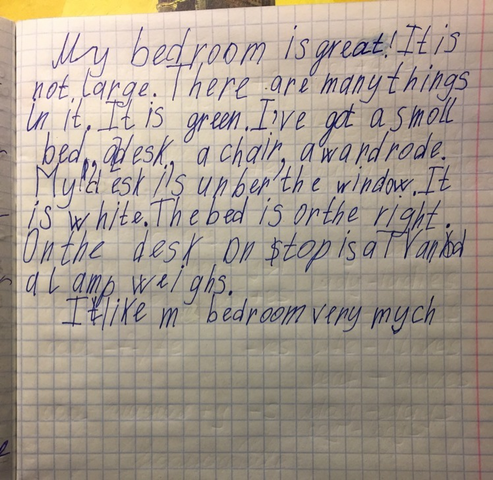 My bedroom is great! It is
not large. There are many things
in it. It is green. I've got a smoll
bed, a desk, a chair, a wardrode.
My desk is unber the window. It
is white. The bed is on the right.
On the desk on $top is a TV and
a lamp weighs.
I like m bedroom very mych